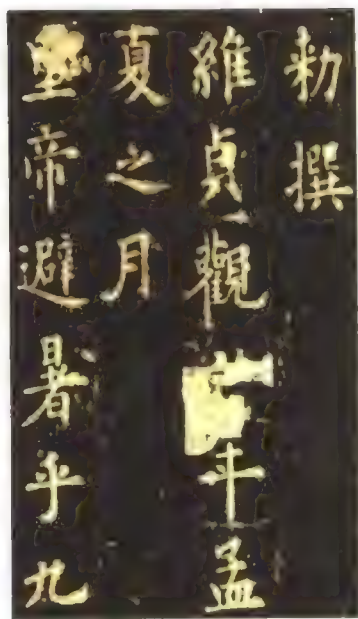 勅撰
維貞觀年孟
夏之月
帝避暑乎九